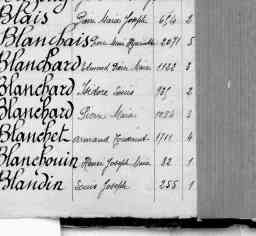 Blais Pierre Marie Joseph 654 2
Blanchais Pierre Marie 2071 5
Blanchard Edmond Pierre Marie 1122 3
Blanchard Isidore Louis 2
Blanchard Pierre Marie 3
Blanchet Armand 1711 4
Blanchouin Pierre Joseph Marie 82 1
Blandin Louis Joseph 255 1